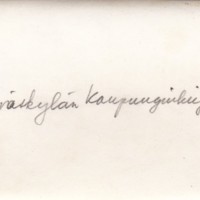 väskylän kaupunginkirj